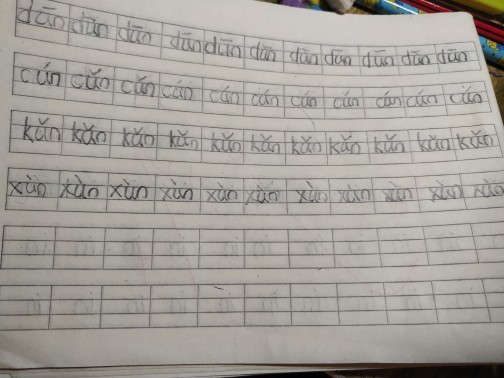 dūn dūn dūn dūn dūn dūn dūn dūn dūn dūn dūn
cún cún cún cún cún cún cún cún cún cún cún
kǔn kǔn kǔn kǔn kǔn kǔn kǔn kǔn kǔn kǔn kǔn
xùn xùn xùn xùn xùn xùn xùn xùn xùn xùn xùn